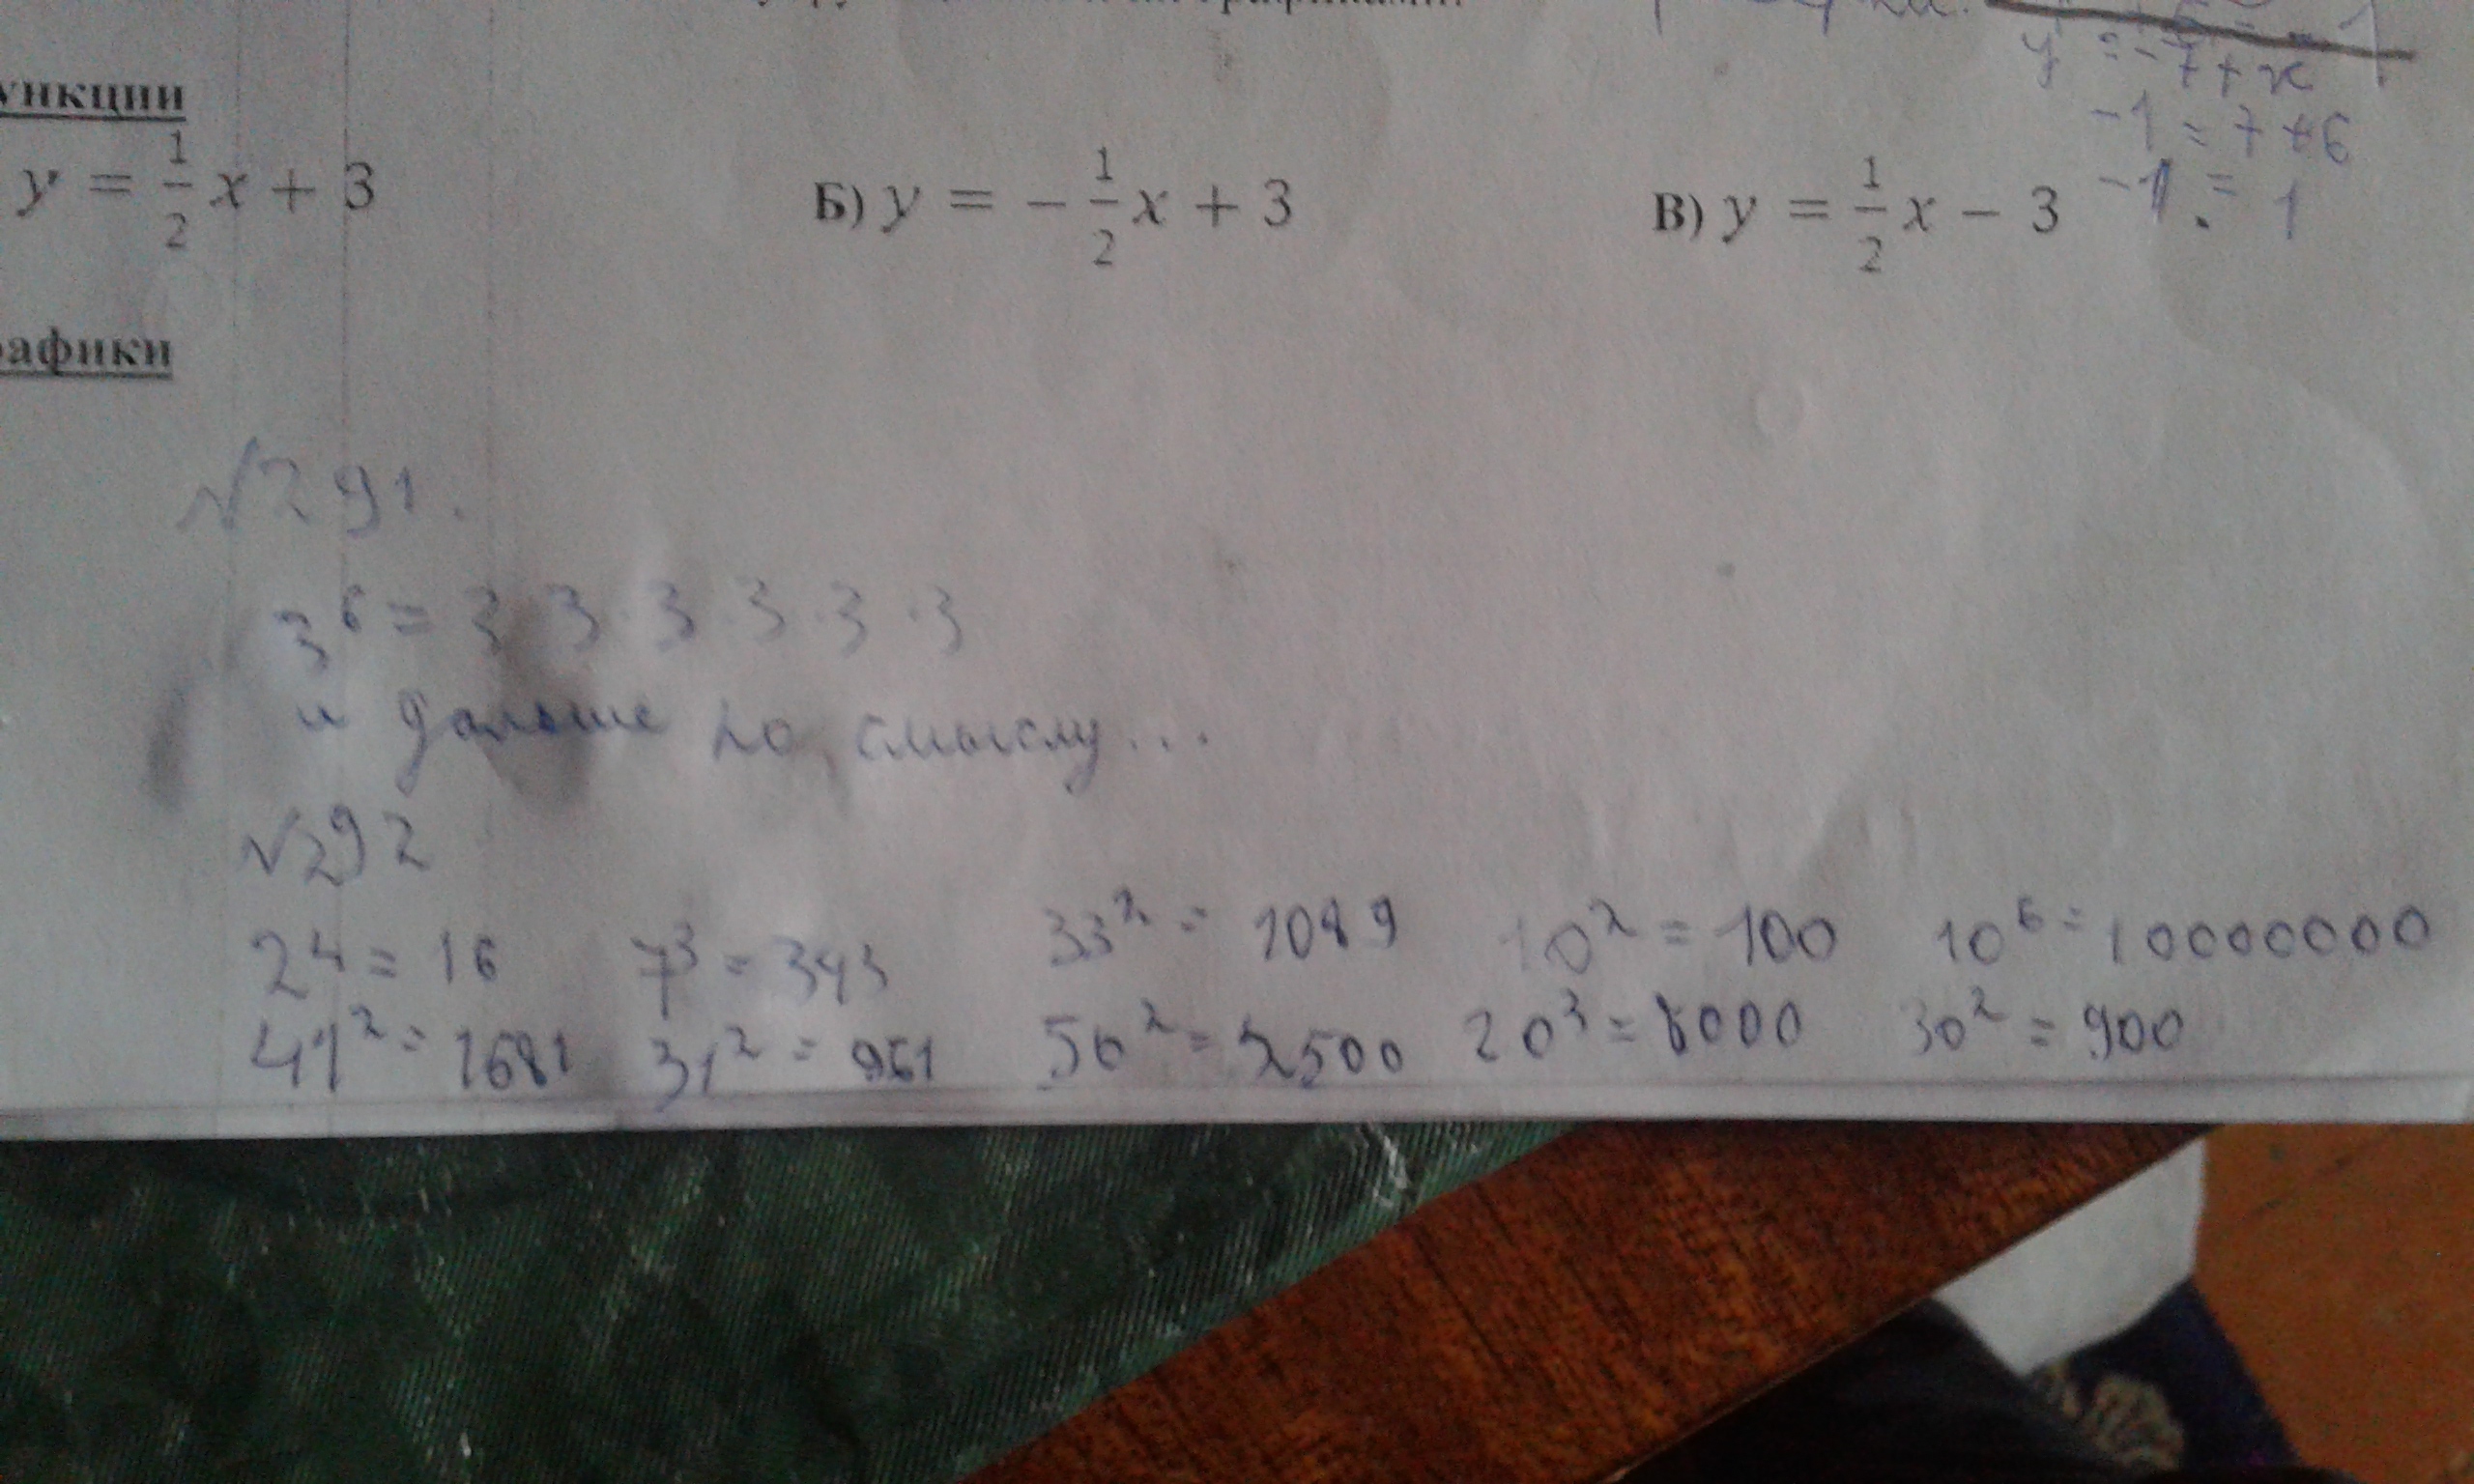 y = -7 + x
-1 = 7 + 6
-1 = 1
ункции
y = 1/2 x + 3 Б) y = - 1/2 x + 3 В) y = 1/2 x - 3
рафики
№291.
3⁶ = 3 · 3 · 3 · 3 · 3 · 3
и дальше по смыслу...
№292
2⁴ = 16 7³ = 343 33² = 1089 10² = 100 10⁶ = 10000000
41² = 1681 31² = 961 50² = 2500 20³ = 8000 30² = 900